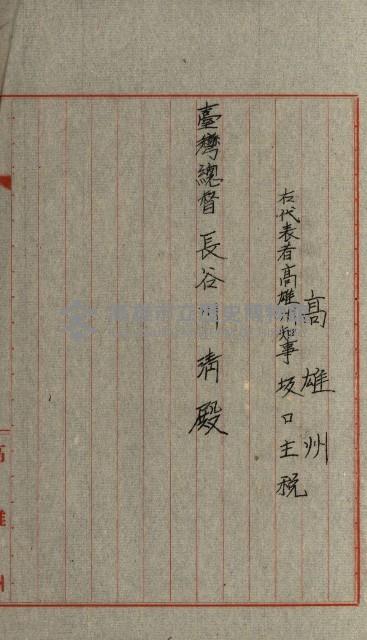 高雄州
右代表者高雄州知事 坂口主税
臺灣總督 長谷川清殿
高雄州
高雄市立歷史博物館